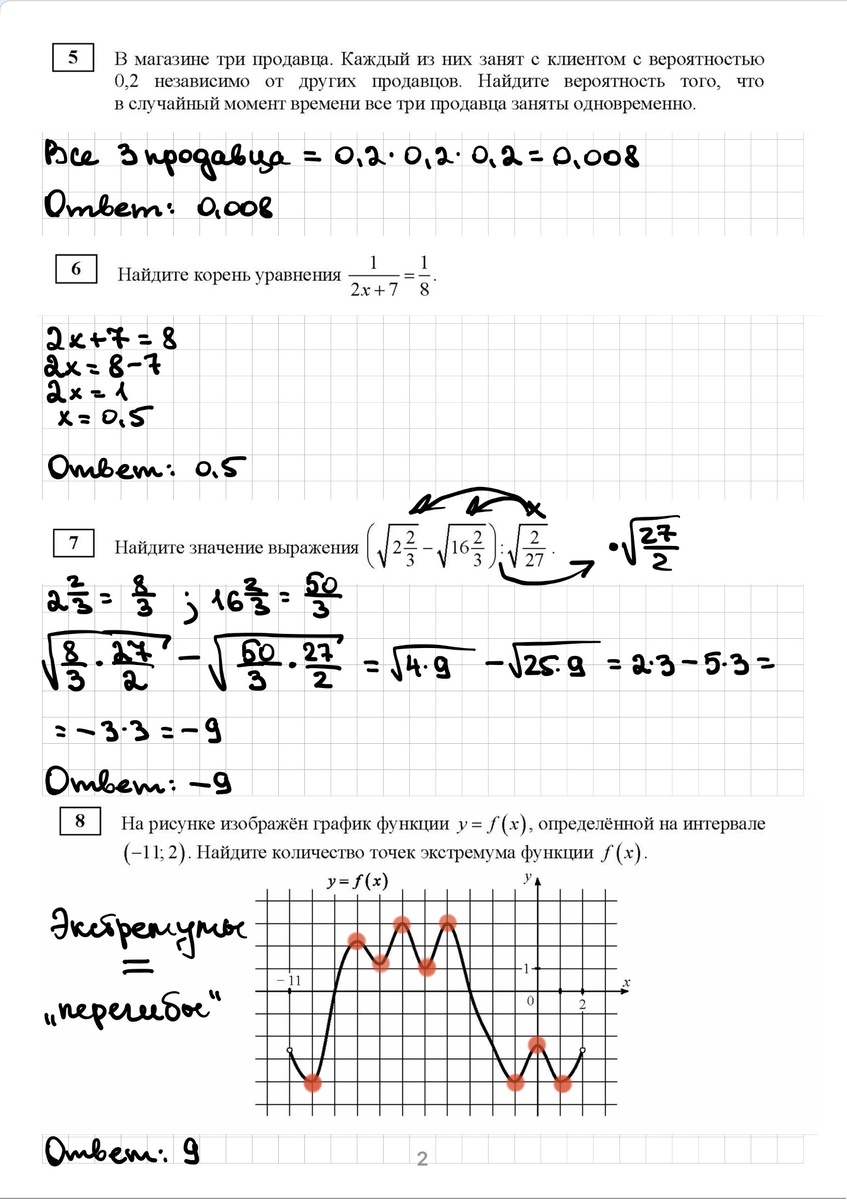 5
В магазине три продавца. Каждый из них занят с клиентом с вероятностью
0,2 независимо от других продавцов. Найдите вероятность того, что
в случайный момент времени все три продавца заняты одновременно.
Все 3 продавца = 0,2 · 0,2 · 0,2 = 0,008
Ответ: 0,008
6
Найдите корень уравнения 1/(2x+7) = 1/8.
2x+7=8
2x=8-7
2x=1
x=0,5
Ответ: 0,5
7
Найдите значение выражения (√(2 2/3) − √(16 2/3)) : √(2/27).
·√(27/2)
2 2/3 = 8/3 ; 16 2/3 = 50/3
√(8/3 · 27/2) − √(50/3 · 27/2) = √(4·9) − √(25·9) = 2·3 − 5·3 =
= −3·3 = −9
Ответ: −9
8
На рисунке изображён график функции y = f(x), определённой на интервале
(−11; 2). Найдите количество точек экстремума функции f(x).
y = f(x)
y
Экстремумы
=
„перегибы“
−11
1
x
0
2
Ответ: 9
2